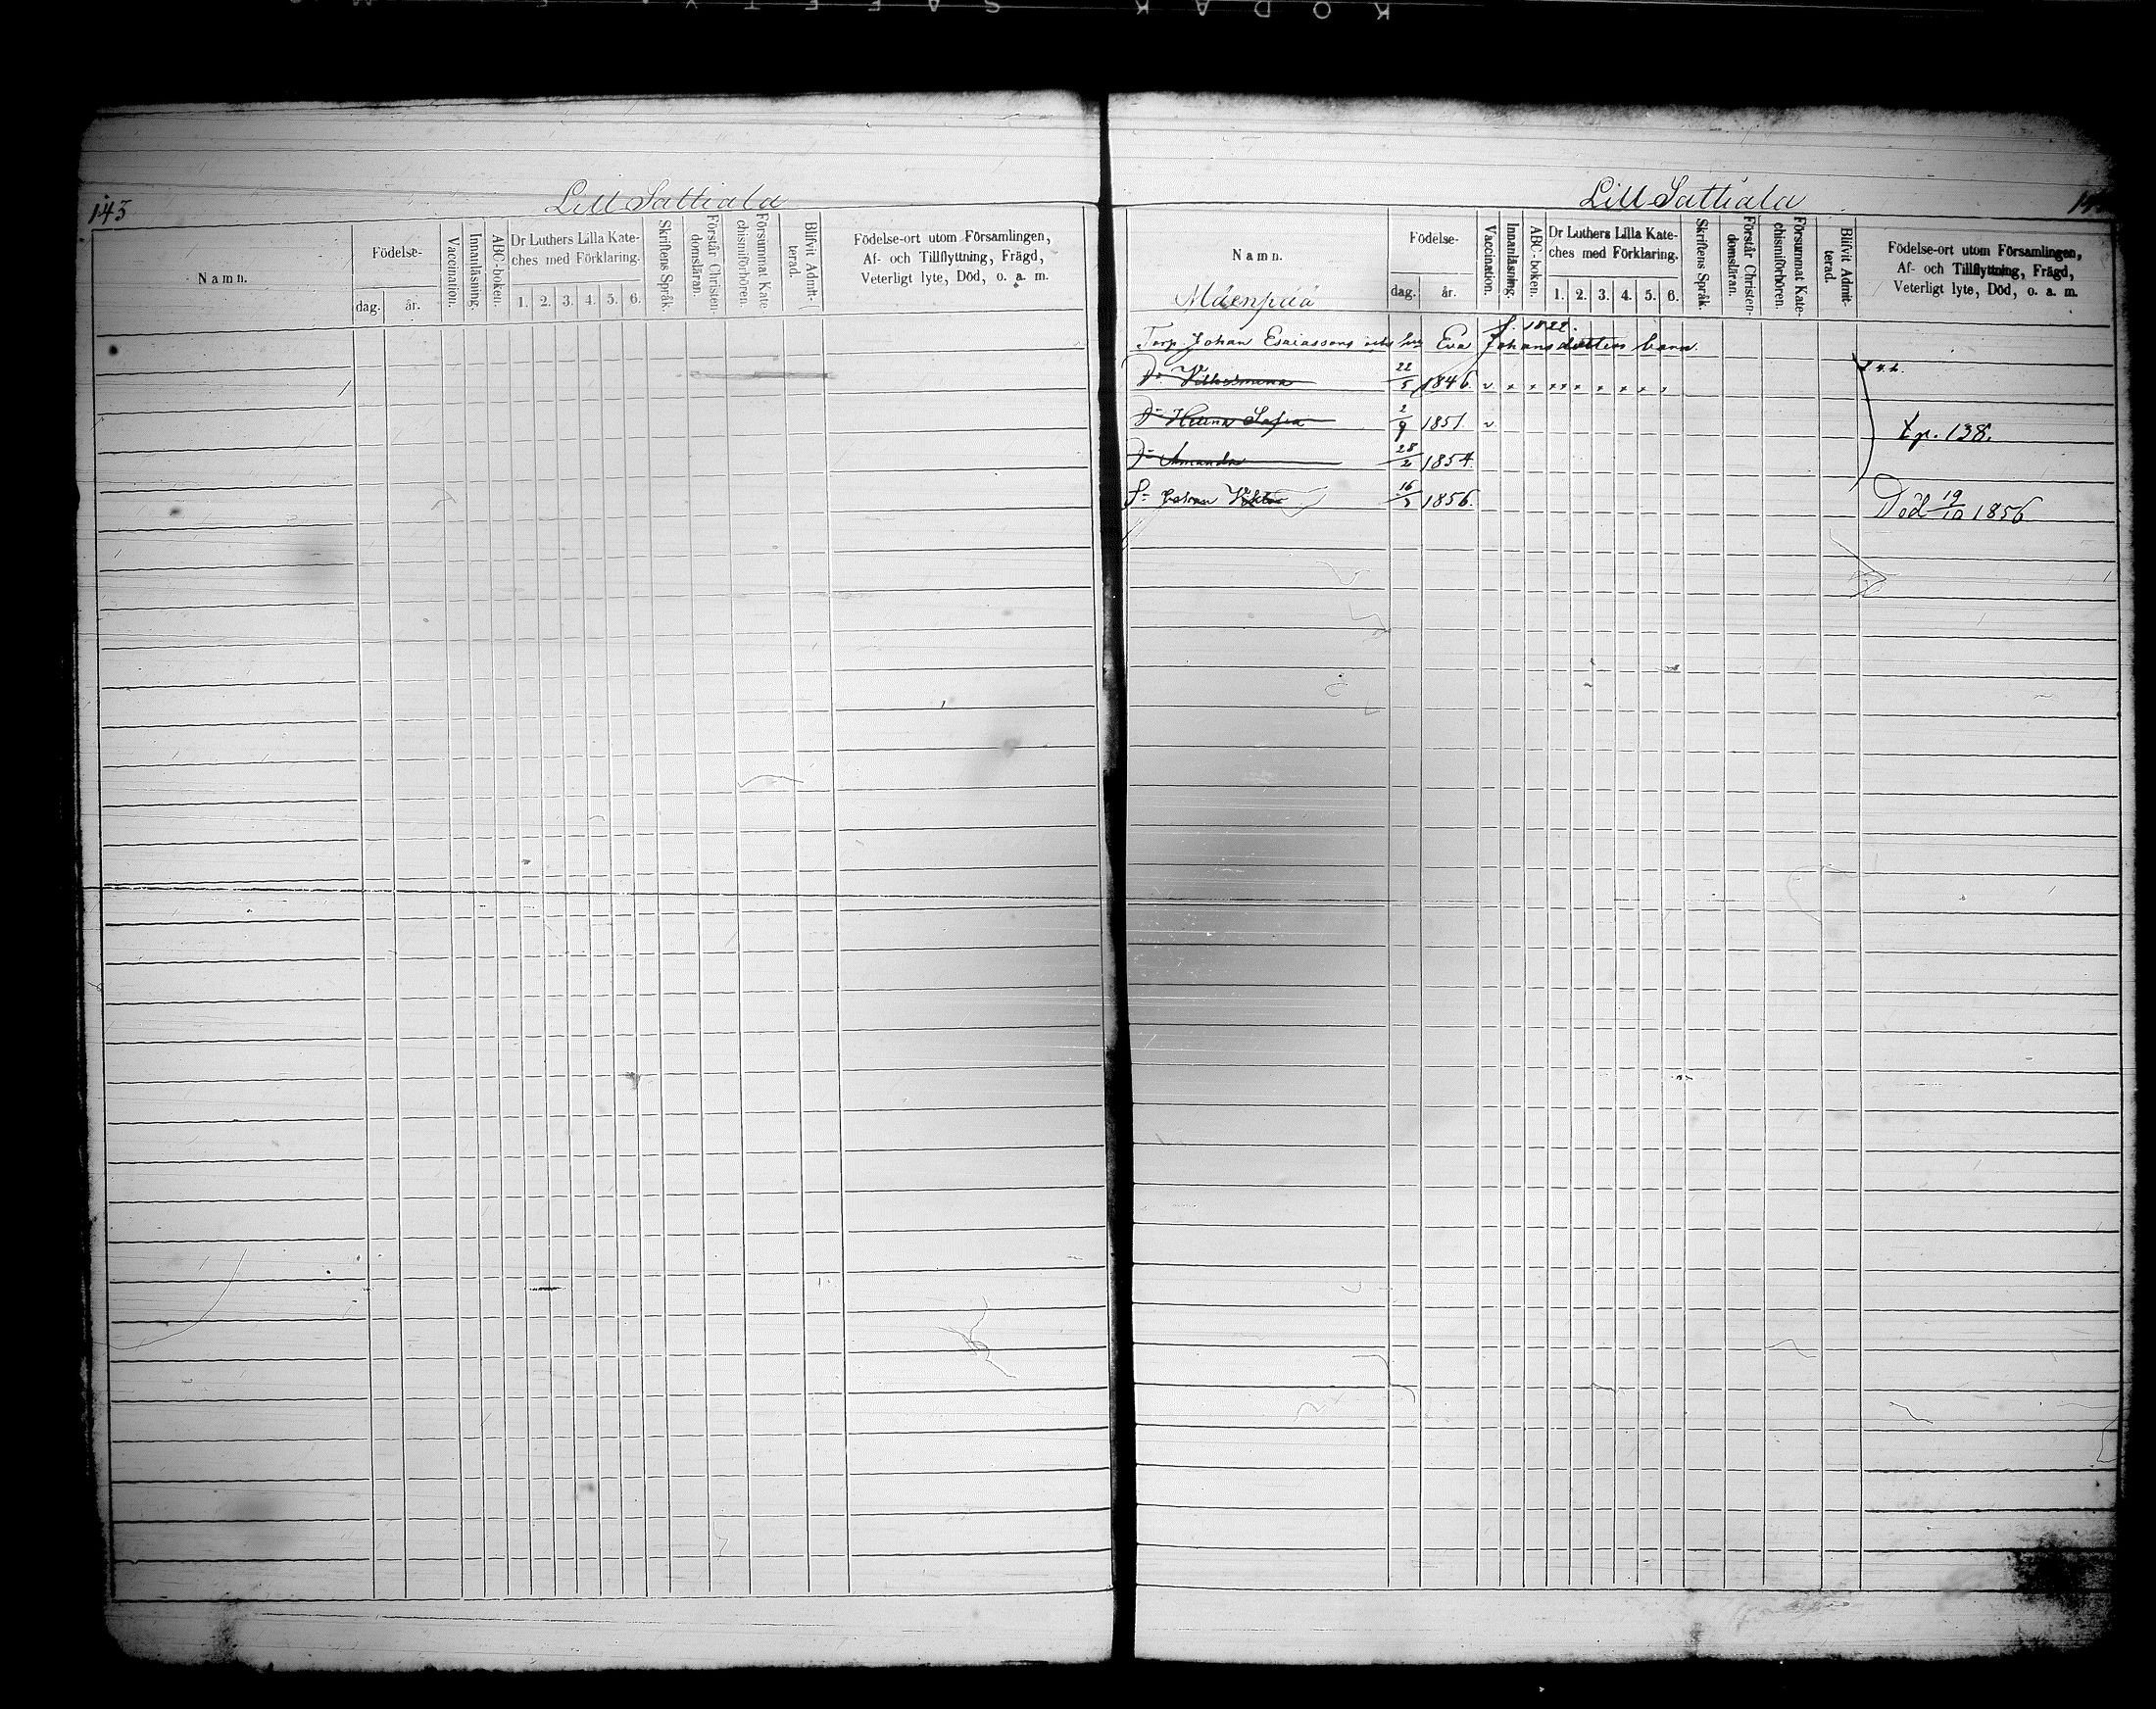 KODAK SAFETY
143
Lill Sattiala
Namn.
Födelse-
dag.
år.
Vaccination.
Innanläsning.
ABC-boken.
Dr Luthers Lilla Kate-
ches med Förklaring.
1. 2. 3. 4. 5. 6.
Skriftens Språk.
Förstår Christen-
domsläran.
Försummat Kate-
chismiförhören.
Blifvit Admit-
terad.
Födelse-ort utom Församlingen,
Af- och Tillflyttning, Frägd,
Veterligt lyte, Död, o. a. m.
Lill Sattiala
Namn.
Mäenpää
Födelse-
dag.
år.
Vaccination.
Innanläsning.
ABC-boken.
Dr Luthers Lilla Kate-
ches med Förklaring.
1. 2. 3. 4. 5. 6.
Skriftens Språk.
Förstår Christen-
domsläran.
Försummat Kate-
chismiförhören.
Blifvit Admit-
terad.
Födelse-ort utom Församlingen,
Af- och Tillflyttning, Frägd,
Veterligt lyte, Död, o. a. m.
f. 1822.
Torp. Johan Esaiassons och Eva Johansdotters barn.
Dr Vilhelmina 22/5 1846. v x x x x x x x x x
Dr Helena Sofia 2/9 1851. v
t p. 138.
Dr Amanda 28/2 1854.
Sn Johan Viktor 1856. Död 19/10 1856